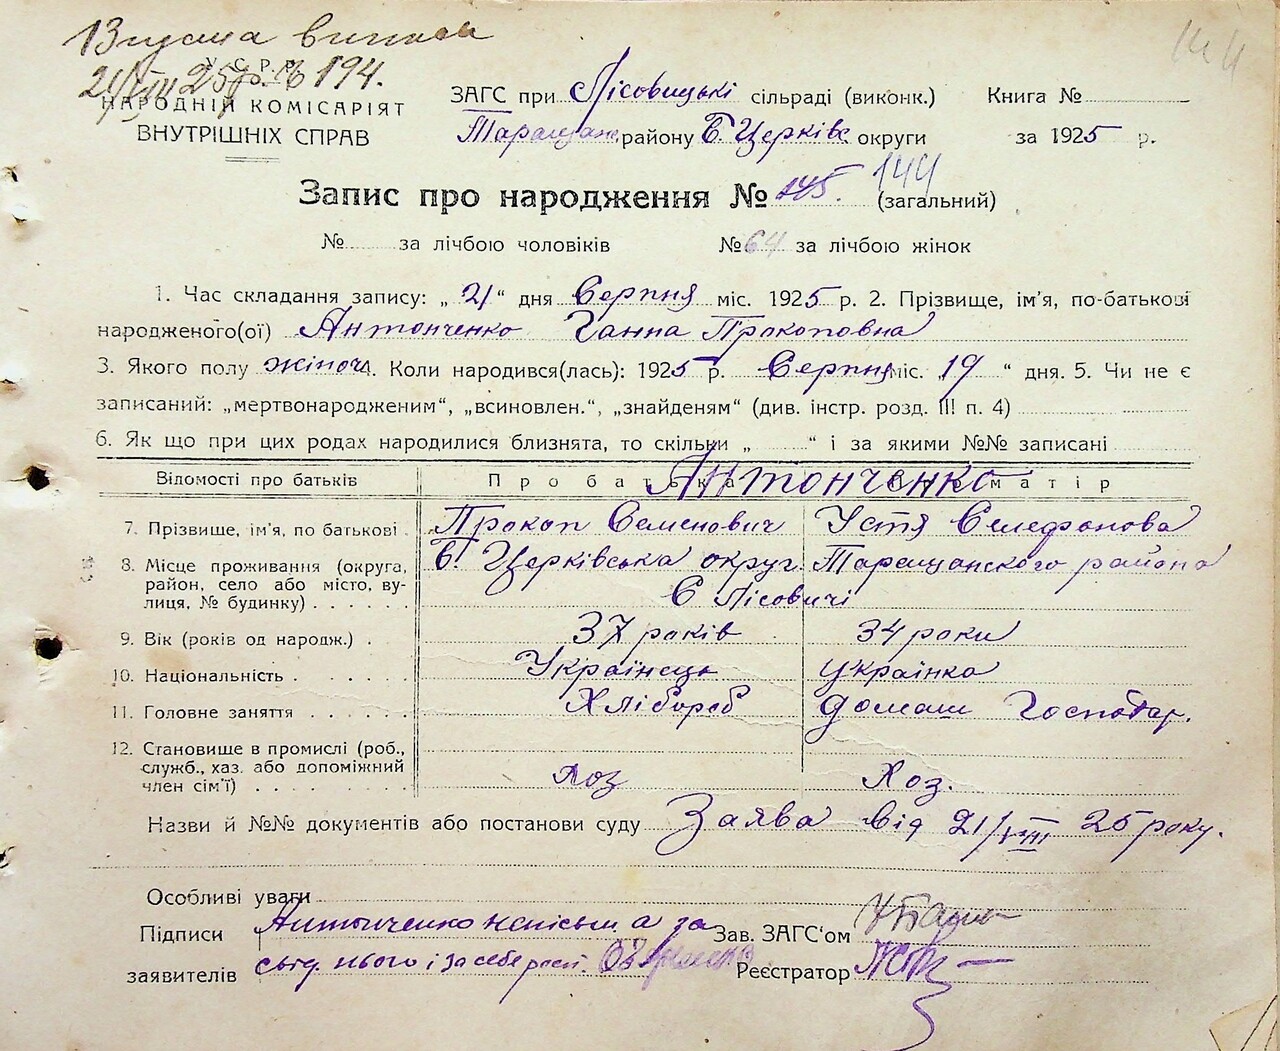 Видана виписка
21/VIII 25 р. № 194.
У.С.Р.Р.
НАРОДНІЙ КОМІСАРІЯТ
ВНУТРІШНІХ СПРАВ
ЗАГС при Лісовицькі сільраді (виконк.) Книга №
Таращан району Б. Церківс округи за 1925 р.
Запис про народження № 145. 144 (загальний)
№ за лічбою чоловіків № 64 за лічбою жінок
1. Час складання запису: „ 21 “ дня Серпня міс. 1925 р. 2. Прізвище, ім'я, по-батькові
народженого(ої) Антонченко Ганна Прокоповна
3. Якого полу жіноч. 4. Коли народився(лась): 1925 р. Серпня міс. 19 “ дня. 5. Чи не є
записаний: „мертвонародженим“, „всиновлен.“, „знайденям“ (див. інстр. розд. III п. 4)
6. Як що при цих родах народилися близнята, то скільки „ “ і за якими №№ записані
Відомості про батьків Про батька Про матір
Антонченко
7. Прізвище, ім'я, по батькові Прокоп Семенович Устя Селефонова
8. Місце проживання (округа, Б. Церківська округ. Таращанского района
район, село або місто, ву-
лиця, № будинку) С Лісовичі
9. Вік (років од народж.) 37 років 34 роки
10. Національність Українець Українка
11. Головне заняття Хлібороб домаш Господар.
12. Становище в промислі (роб.,
служб., хаз. або допоміжний
член сім'ї) Хоз Хоз.
Назви й №№ документів або постанови суду Заява від 21/VIII 25 року.
Особливі уваги
Підписи Антонченко неписьм а за Зав. ЗАГС'ом
заявителів нього і за себе Реєстратор